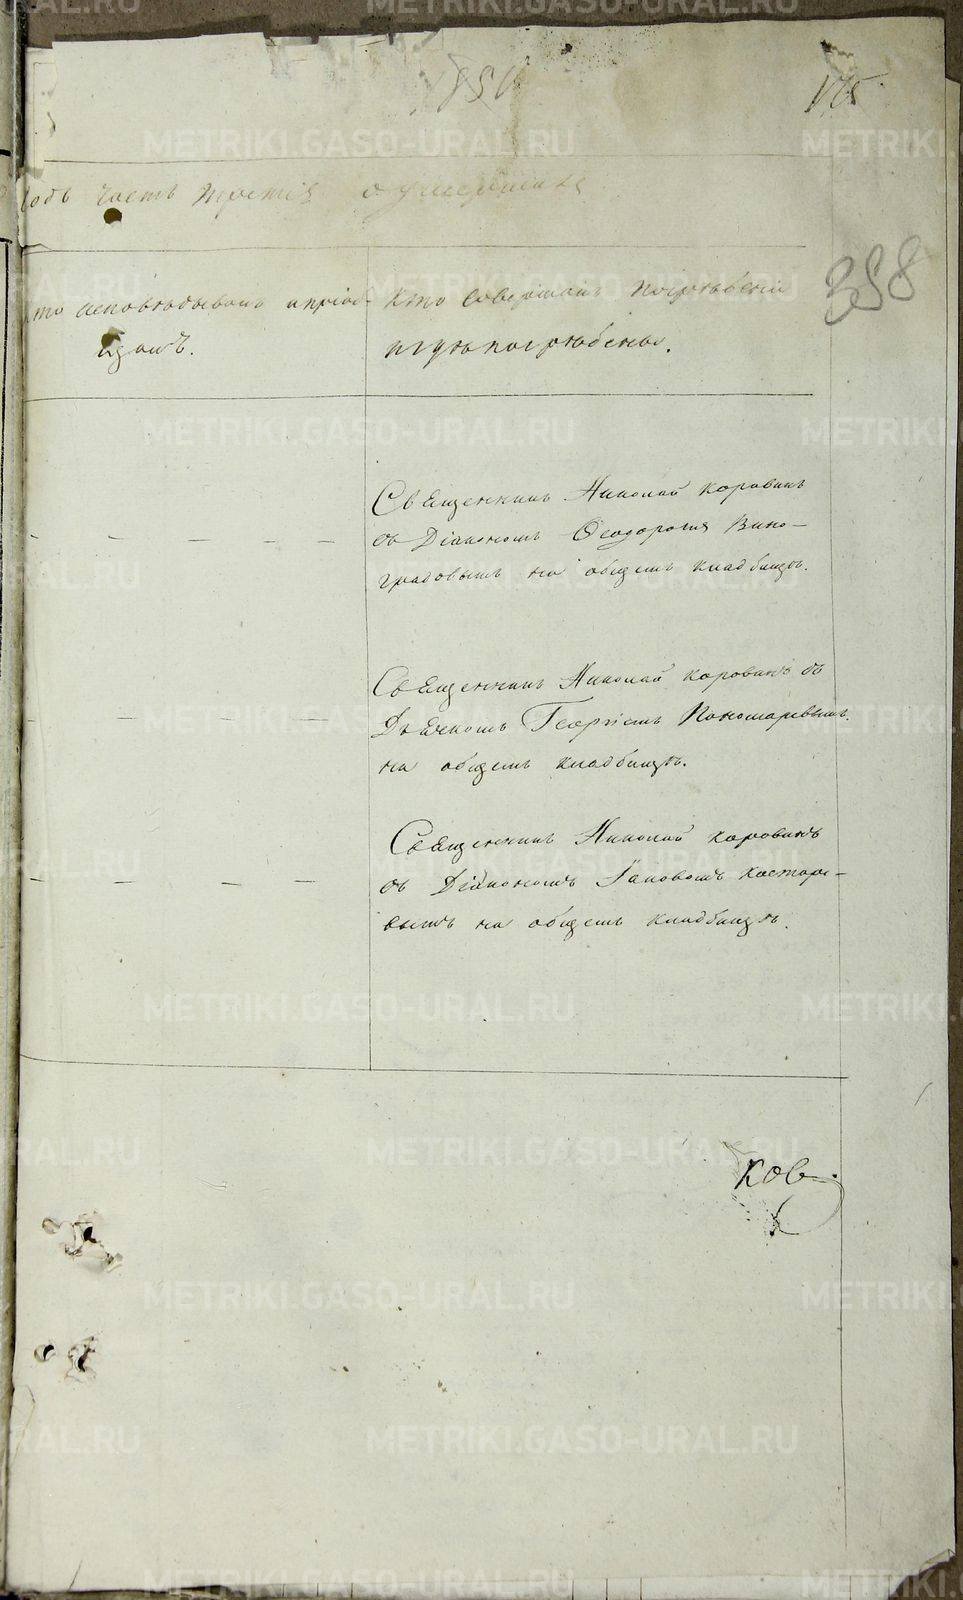 165
годъ часть третія о умершихъ
358
кто исповѣдывалъ и пріоб-
щалъ.
кто совершалъ погребеніе
и гдѣ погребены.
Священникъ Николай Коровинъ
съ Діакономъ Ѳеодоромъ Вино-
градовымъ на общемъ кладбищѣ.
Священникъ Николай Коровинъ съ
Дьячкомъ Георгіемъ Пономаревымъ
на общемъ кладбищѣ.
Священникъ Николай Коровинъ
съ Діакономъ Іаковомъ Кастаре-
вымъ на общемъ кладбищѣ.
ков
METRIKI.GASO-URAL.RU